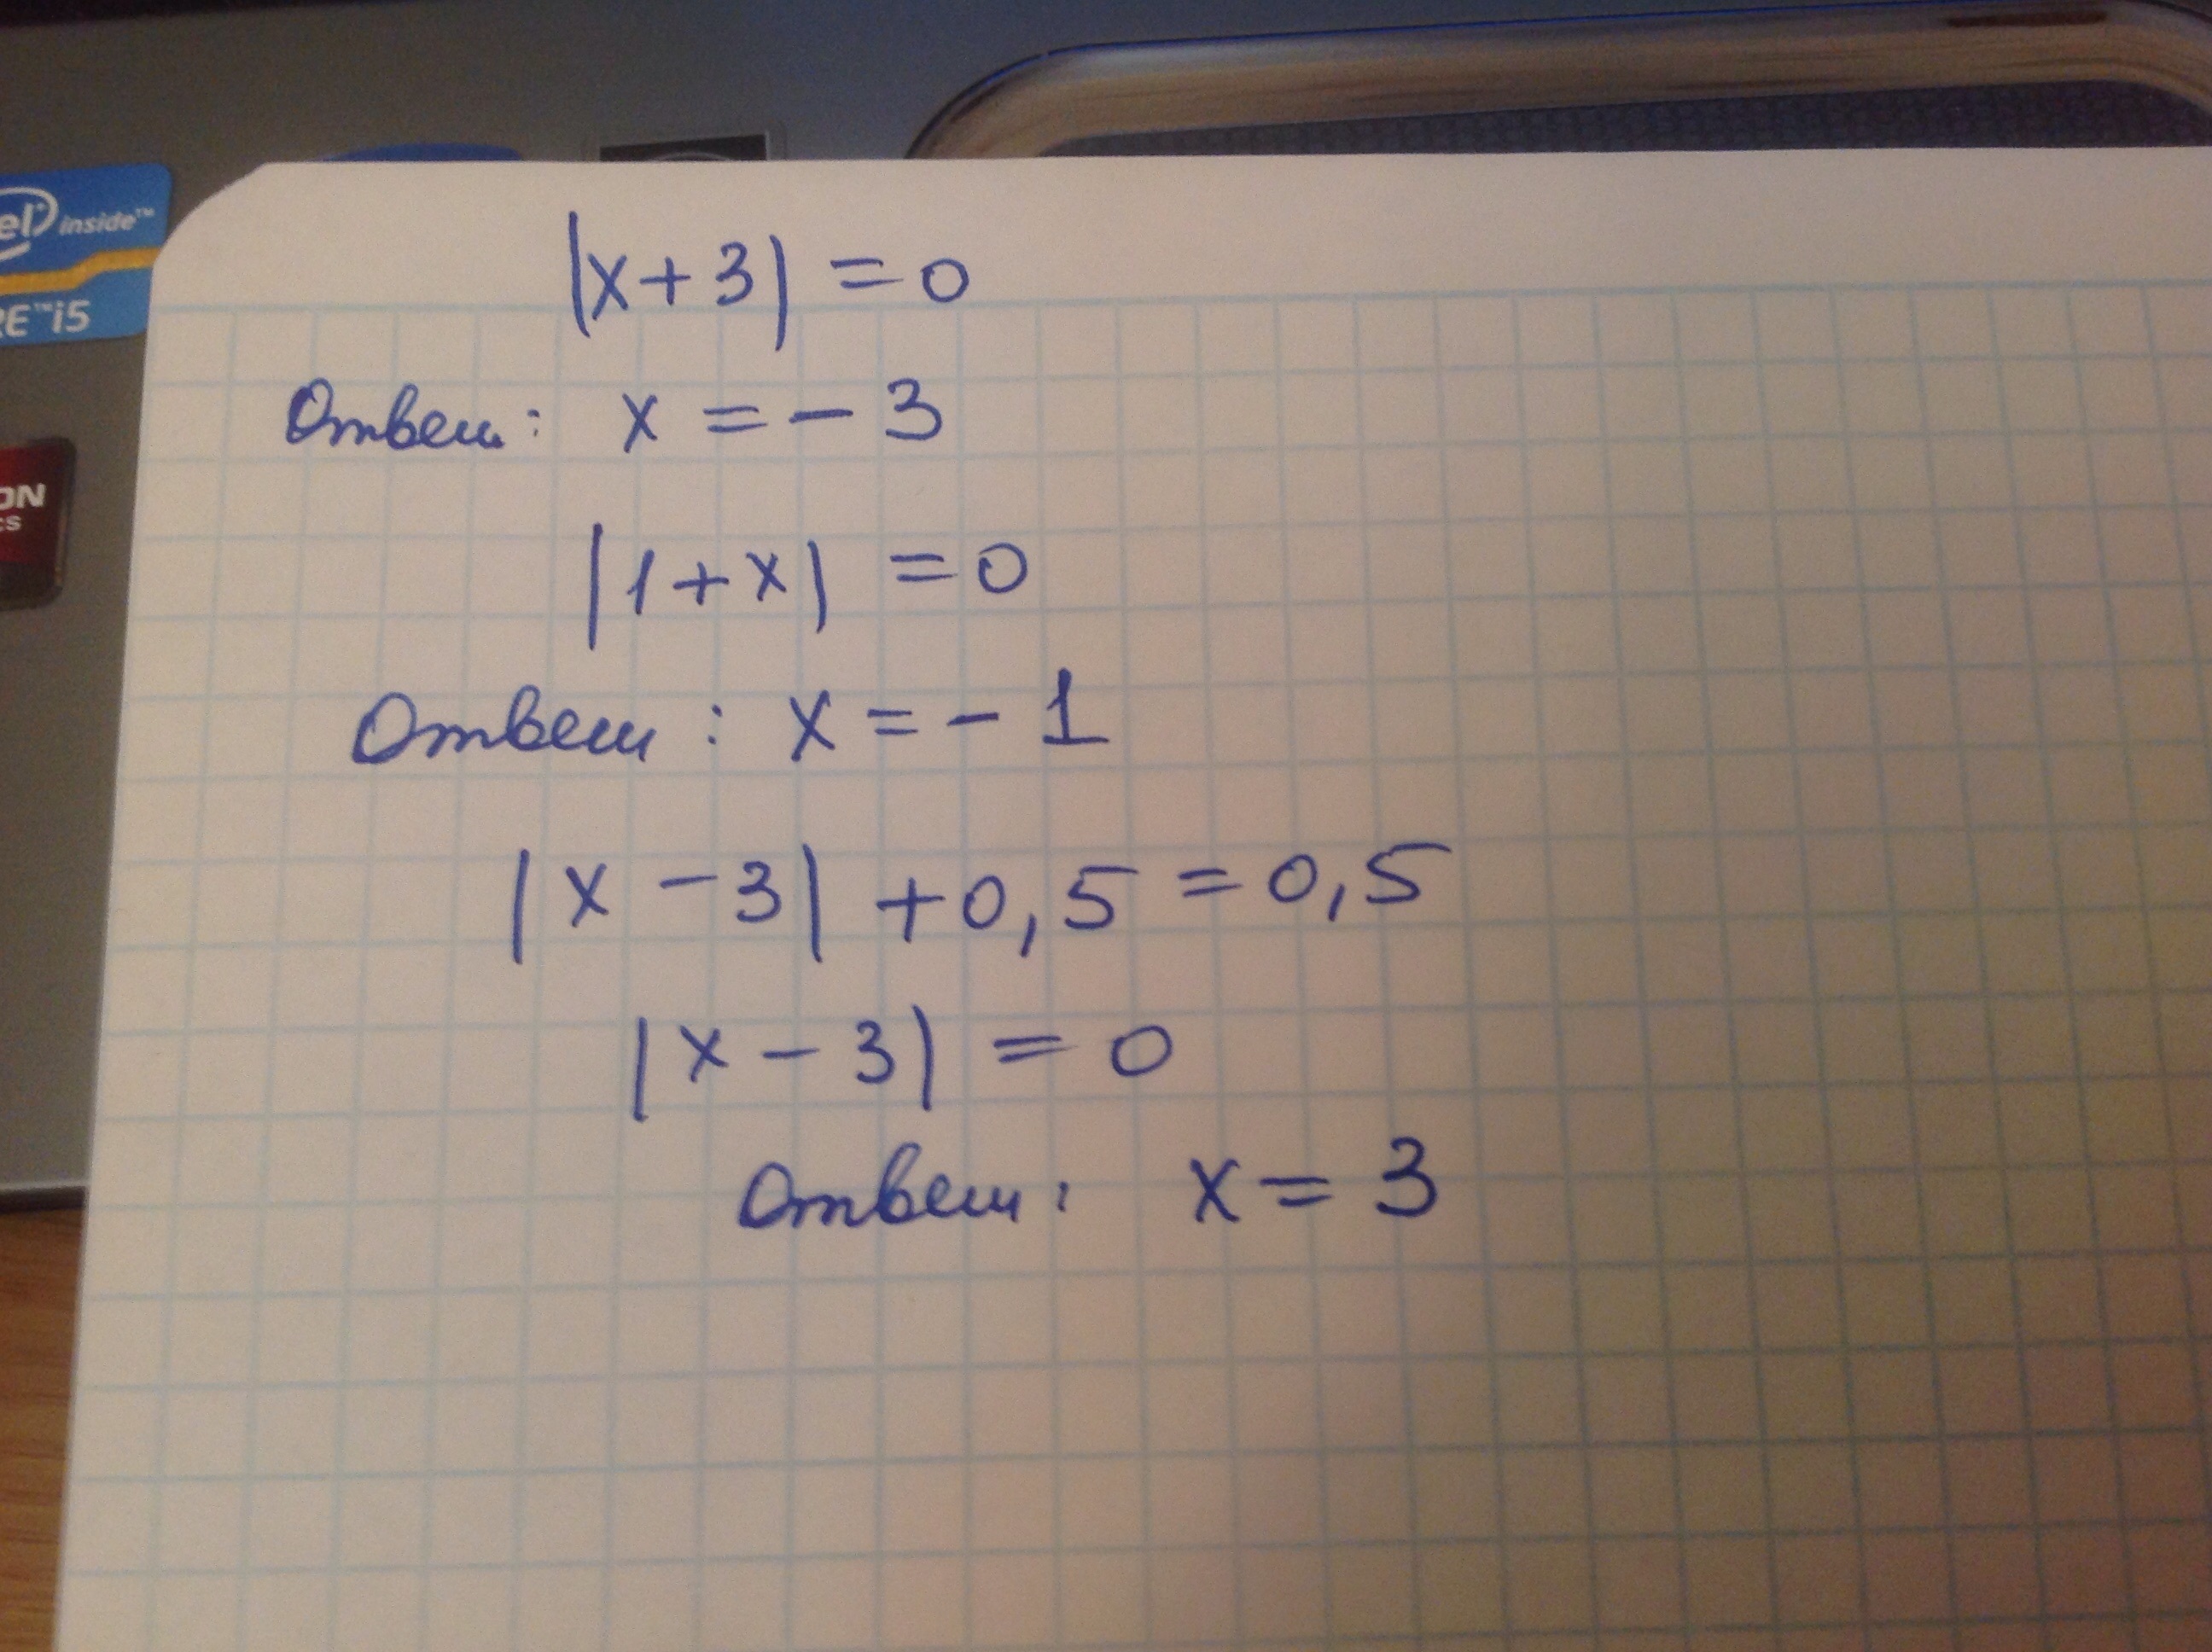 el inside™
RE™ i5
ON
CS
|x+3| = 0
Ответ: x = - 3
|1+x| = 0
Ответ: x = - 1
|x - 3| + 0,5 = 0,5
|x - 3| = 0
Ответ: x = 3